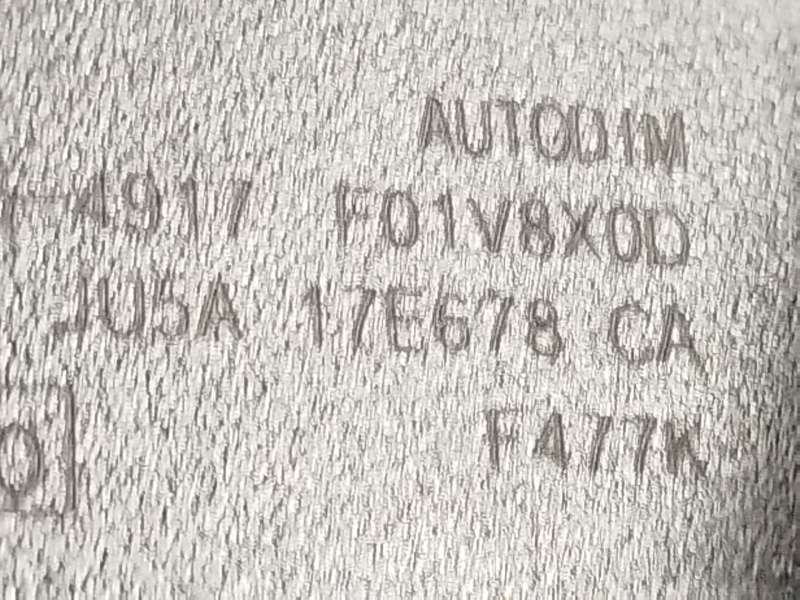 AUTODIM
4917 F01V8X0D
JU5A 17E678 CA
F477K